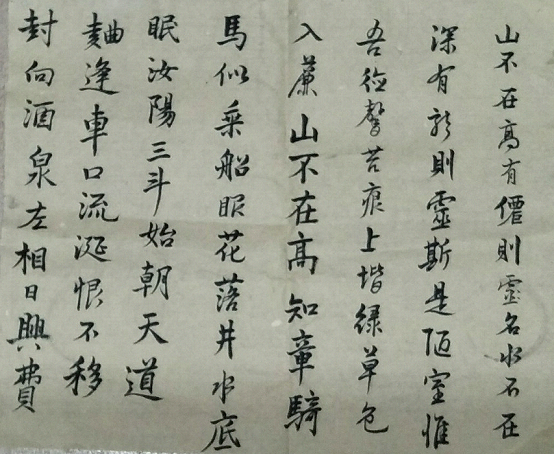 山不在高有僊則靈名水不在
深有龍則靈斯是陋室惟
吾德馨苔痕上堦緑草色
入簾山不在高知章騎
馬似乘船眼花落井水底
眠汝陽三斗始朝天道
麯逢車口流涎恨不移
封向酒泉左相日興費